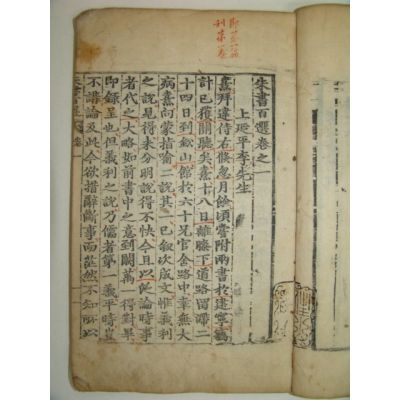 朱書百選卷之一
上延平李先生
熹拜違侍右倐忽月餘頃嘗附兩書於建寧竊
計已獲關聽矣熹十八日離膝下道路留滯二
十四日到鉛山館於六十兄官舍路中幸無大
病熹向蒙指喻二說其一已叙次成文惟義利
之說見得未分明說得不快今且以泛論時事
者代之大略如前書中之意到闕萬一得對畢
即錄呈也但義利之說乃儒者第一義平時豈
不講論及此今欲措辭斷事而茫然不知所以